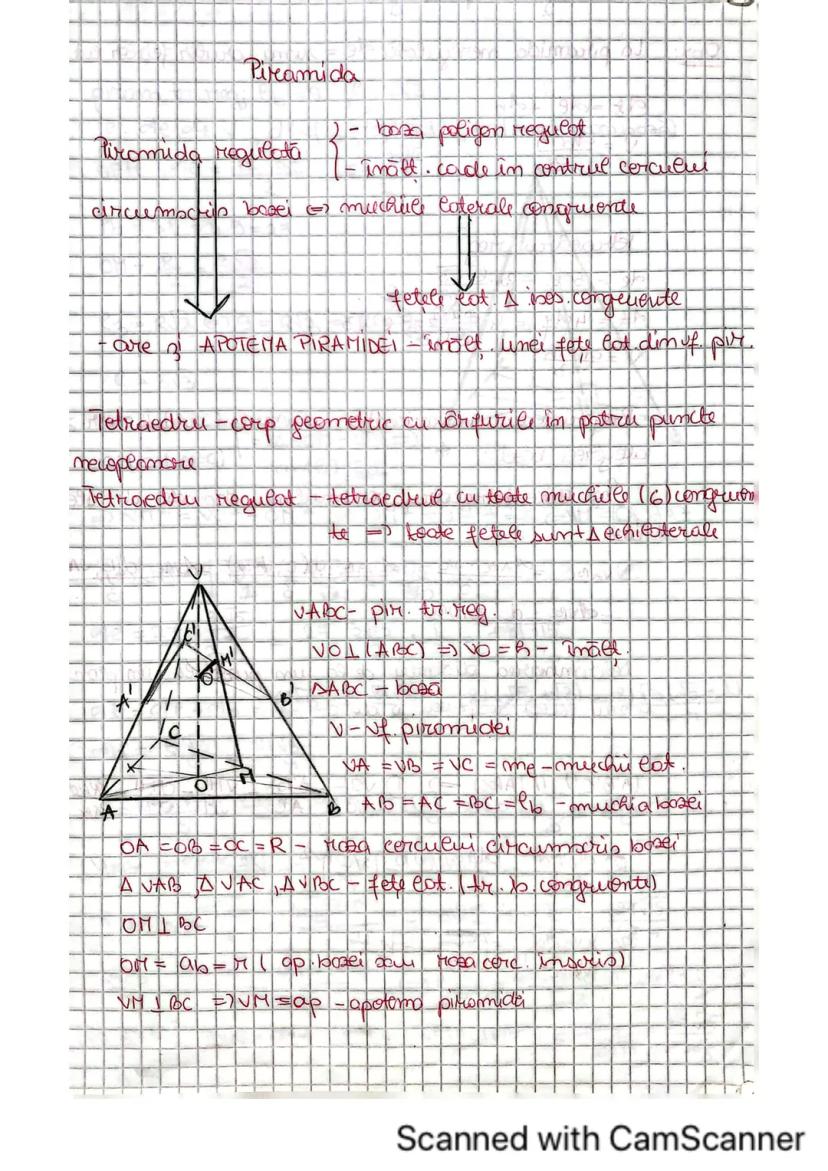 Piramida
Piramida regulată { - baza poligon regulat
- înălț. cade în centrul cercului
circumscris bazei <=> muchiile laterale congruente
fețele lat. Δ isos. congruente
- are și APOTEMA PIRAMIDEI - înălț. unei fețe lat. din vf. pir.
Tetraedru - corp geometric cu vârfurile în patru puncte
necoplanare
Tetraedru regulat - tetraedrul cu toate muchiile (6) congruen
te => toate fețele sunt Δ echilaterale
V
VABC - pir. tr. reg.
C' M' O'
VO ⊥ (ABC) => VO = h - înălț.
A' B'
ΔABC - bază
C
V - vf. piramidei
VA = VB = VC = me - muchii lat.
A O M B
AB = AC = BC = lb - muchia bazei
OA = OB = OC = R - raza cercului circumscris bazei
Δ VAB, Δ VAC, Δ VBC - fețe lat. (tr. is. congruente)
OM ⊥ BC
OM = ab = r ( ap. bazei sau raza cerc. înscris)
VM ⊥ BC => VM = ap - apotema piramidei
Scanned with CamScanner